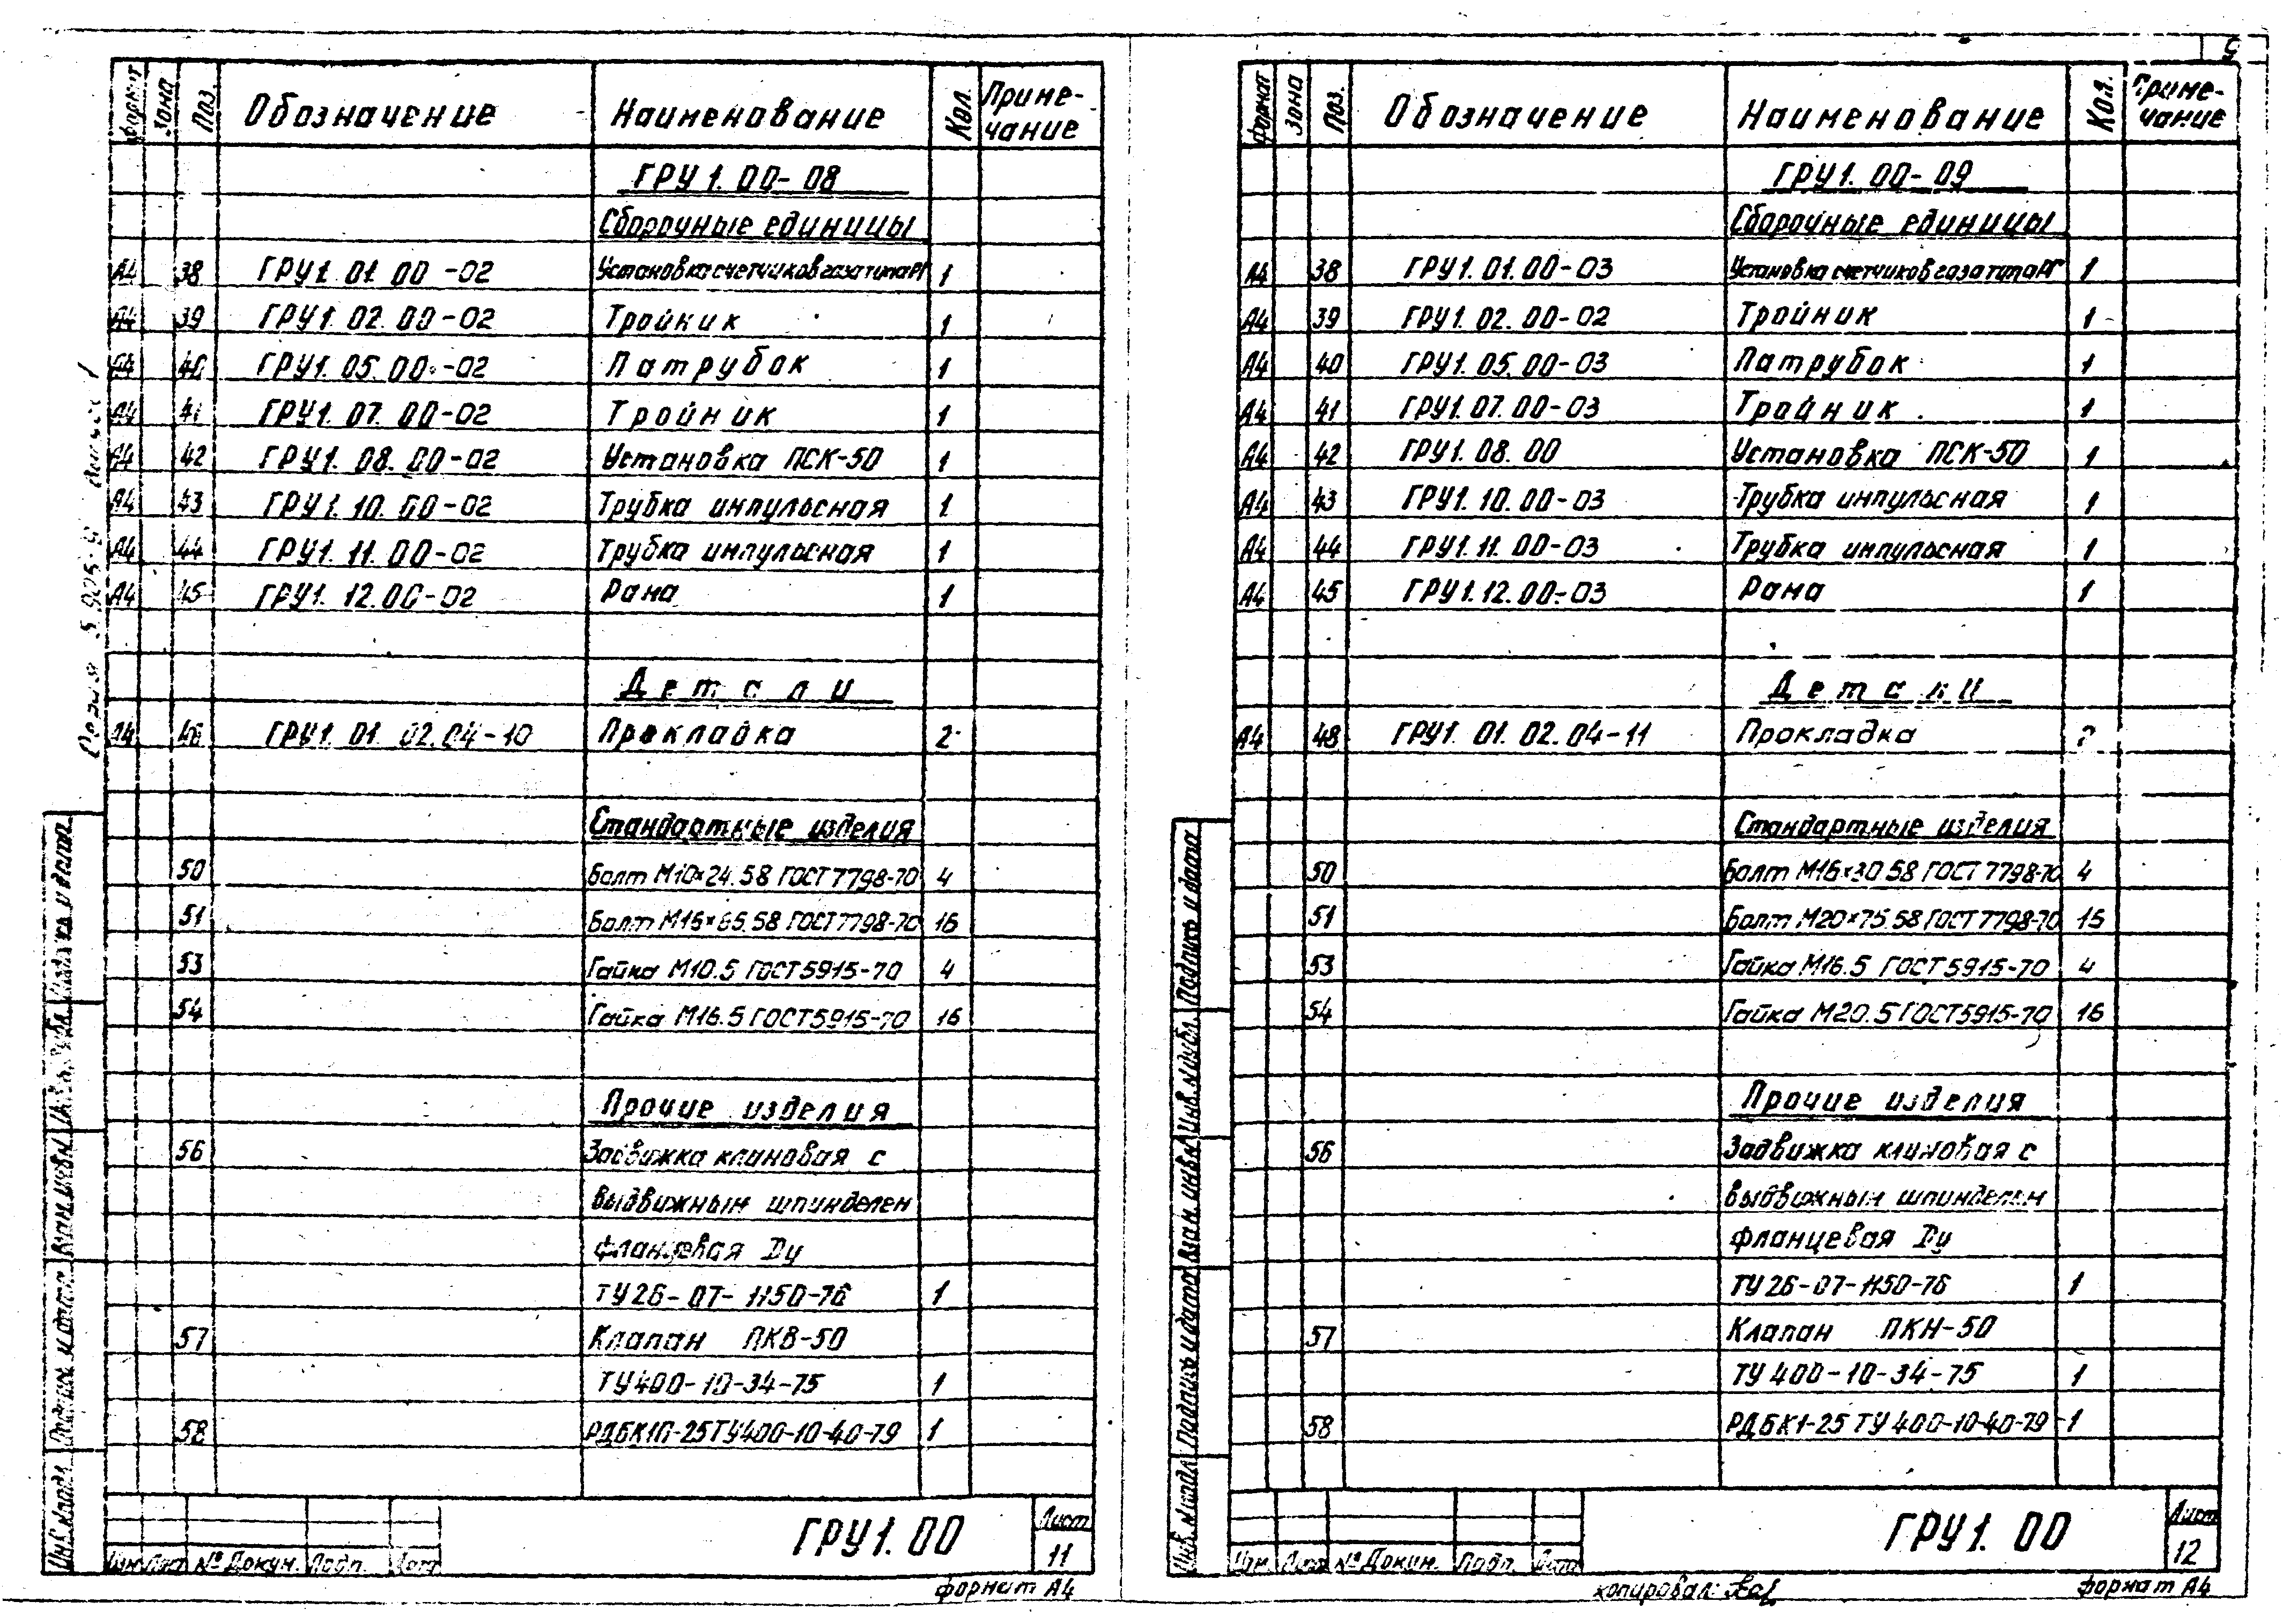 5
Формат Зона Поз. Обозначение Наименование Кол. Приме-
чание
ГРУ 1. 00-08
Сборочные единицы
А4 38 ГРУ1. 01. 00-02 Установка счетчиков газа типа РГ 1
А4 39 ГРУ1. 02. 00-02 Тройник 1
А4 40 ГРУ1. 05. 00-02 Патрубок 1
А4 41 ГРУ1. 07. 00-02 Тройник 1
А4 42 ГРУ1. 08. 00-02 Установка ПСК-50 1
А4 43 ГРУ1. 10. 00-02 Трубка импульсная 1
А4 44 ГРУ1. 11. 00-02 Трубка импульсная 1
А4 45 ГРУ1. 12.00-02 Рама 1
Детали
А4 ГРУ1. 01. 02.04-10 Прокладка 2
Стандартные изделия
50 Болт М10×24.58 ГОСТ 7798-70 4
51 Болт М16×65.58 ГОСТ 7798-70 16
53 Гайка М10.5 ГОСТ 5915-70 4
54 Гайка М16.5 ГОСТ 5915-70 16
Прочие изделия
56 Задвижка клиновая с
выдвижным шпинделем
фланцевая Dу
ТУ26-07-1150-76 1
57 Клапан ПКВ-50
ТУ400-10-34-75 1
58 РДБК1П-25 ТУ400-10-40-79 1
ГРУ1. 00
Лист
11
Изм. Лист № Докум. Подп. Дата
формат А4
Подпись и дата
Взам. инв. №
Подпись и дата
Инв. № подл.
Формат Зона Поз. Обозначение Наименование Кол. Приме-
чание
ГРУ 1. 00-09
Сборочные единицы
А4 38 ГРУ1. 01. 00-03 Установка счетчиков газа типа РГ 1
А4 39 ГРУ1. 02. 00-02 Тройник 1
А4 40 ГРУ1. 05. 00-03 Патрубок 1
А4 41 ГРУ1. 07. 00-03 Тройник 1
А4 42 ГРУ1. 08. 00 Установка ПСК-50 1
А4 43 ГРУ1. 10. 00-03 Трубка импульсная 1
А4 44 ГРУ1. 11. 00-03 Трубка импульсная 1
А4 45 ГРУ1. 12. 00-03 Рама 1
Детали
А4 48 ГРУ1. 01. 02. 04-11 Прокладка
Стандартные изделия
50 Болт М16×30.58 ГОСТ 7798-70 4
51 Болт М20×75.58 ГОСТ 7798-70 16
53 Гайка М16.5 ГОСТ 5915-70 4
54 Гайка М20.5 ГОСТ 5915-70 16
Прочие изделия
56 Задвижка клиновая с
выдвижным шпинделем
фланцевая Dу
ТУ26-07-1150-76 1
57 Клапан ПКН-50
ТУ 400-10-34-75 1
58 РДБК1-25 ТУ 400-10-40-79 1
ГРУ1. 00
Лист
12
Изм. Лист № Докум. Подп. Дата
копировал:
формат А4
Подпись и дата
Инв. № дубл.
Взам. инв. №
Подпись и дата
Инв. № подл.